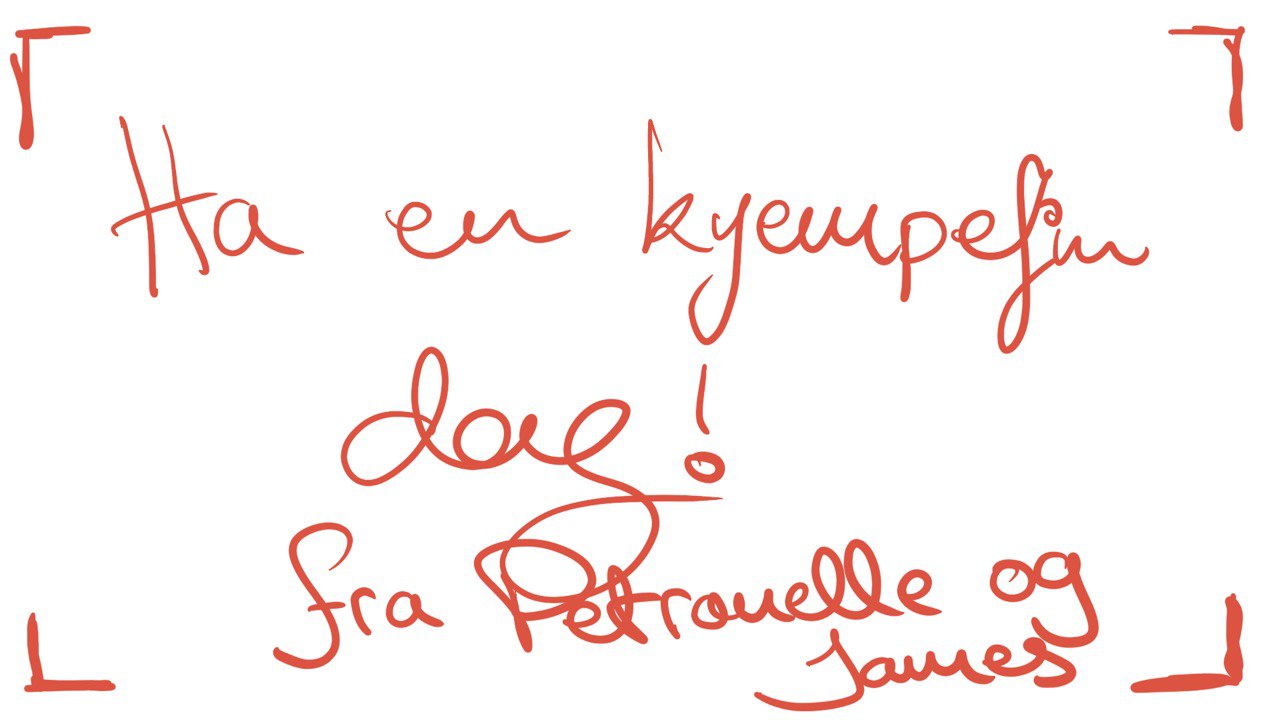 Ha en kjempefin
dag!
fra Petronelle og
James